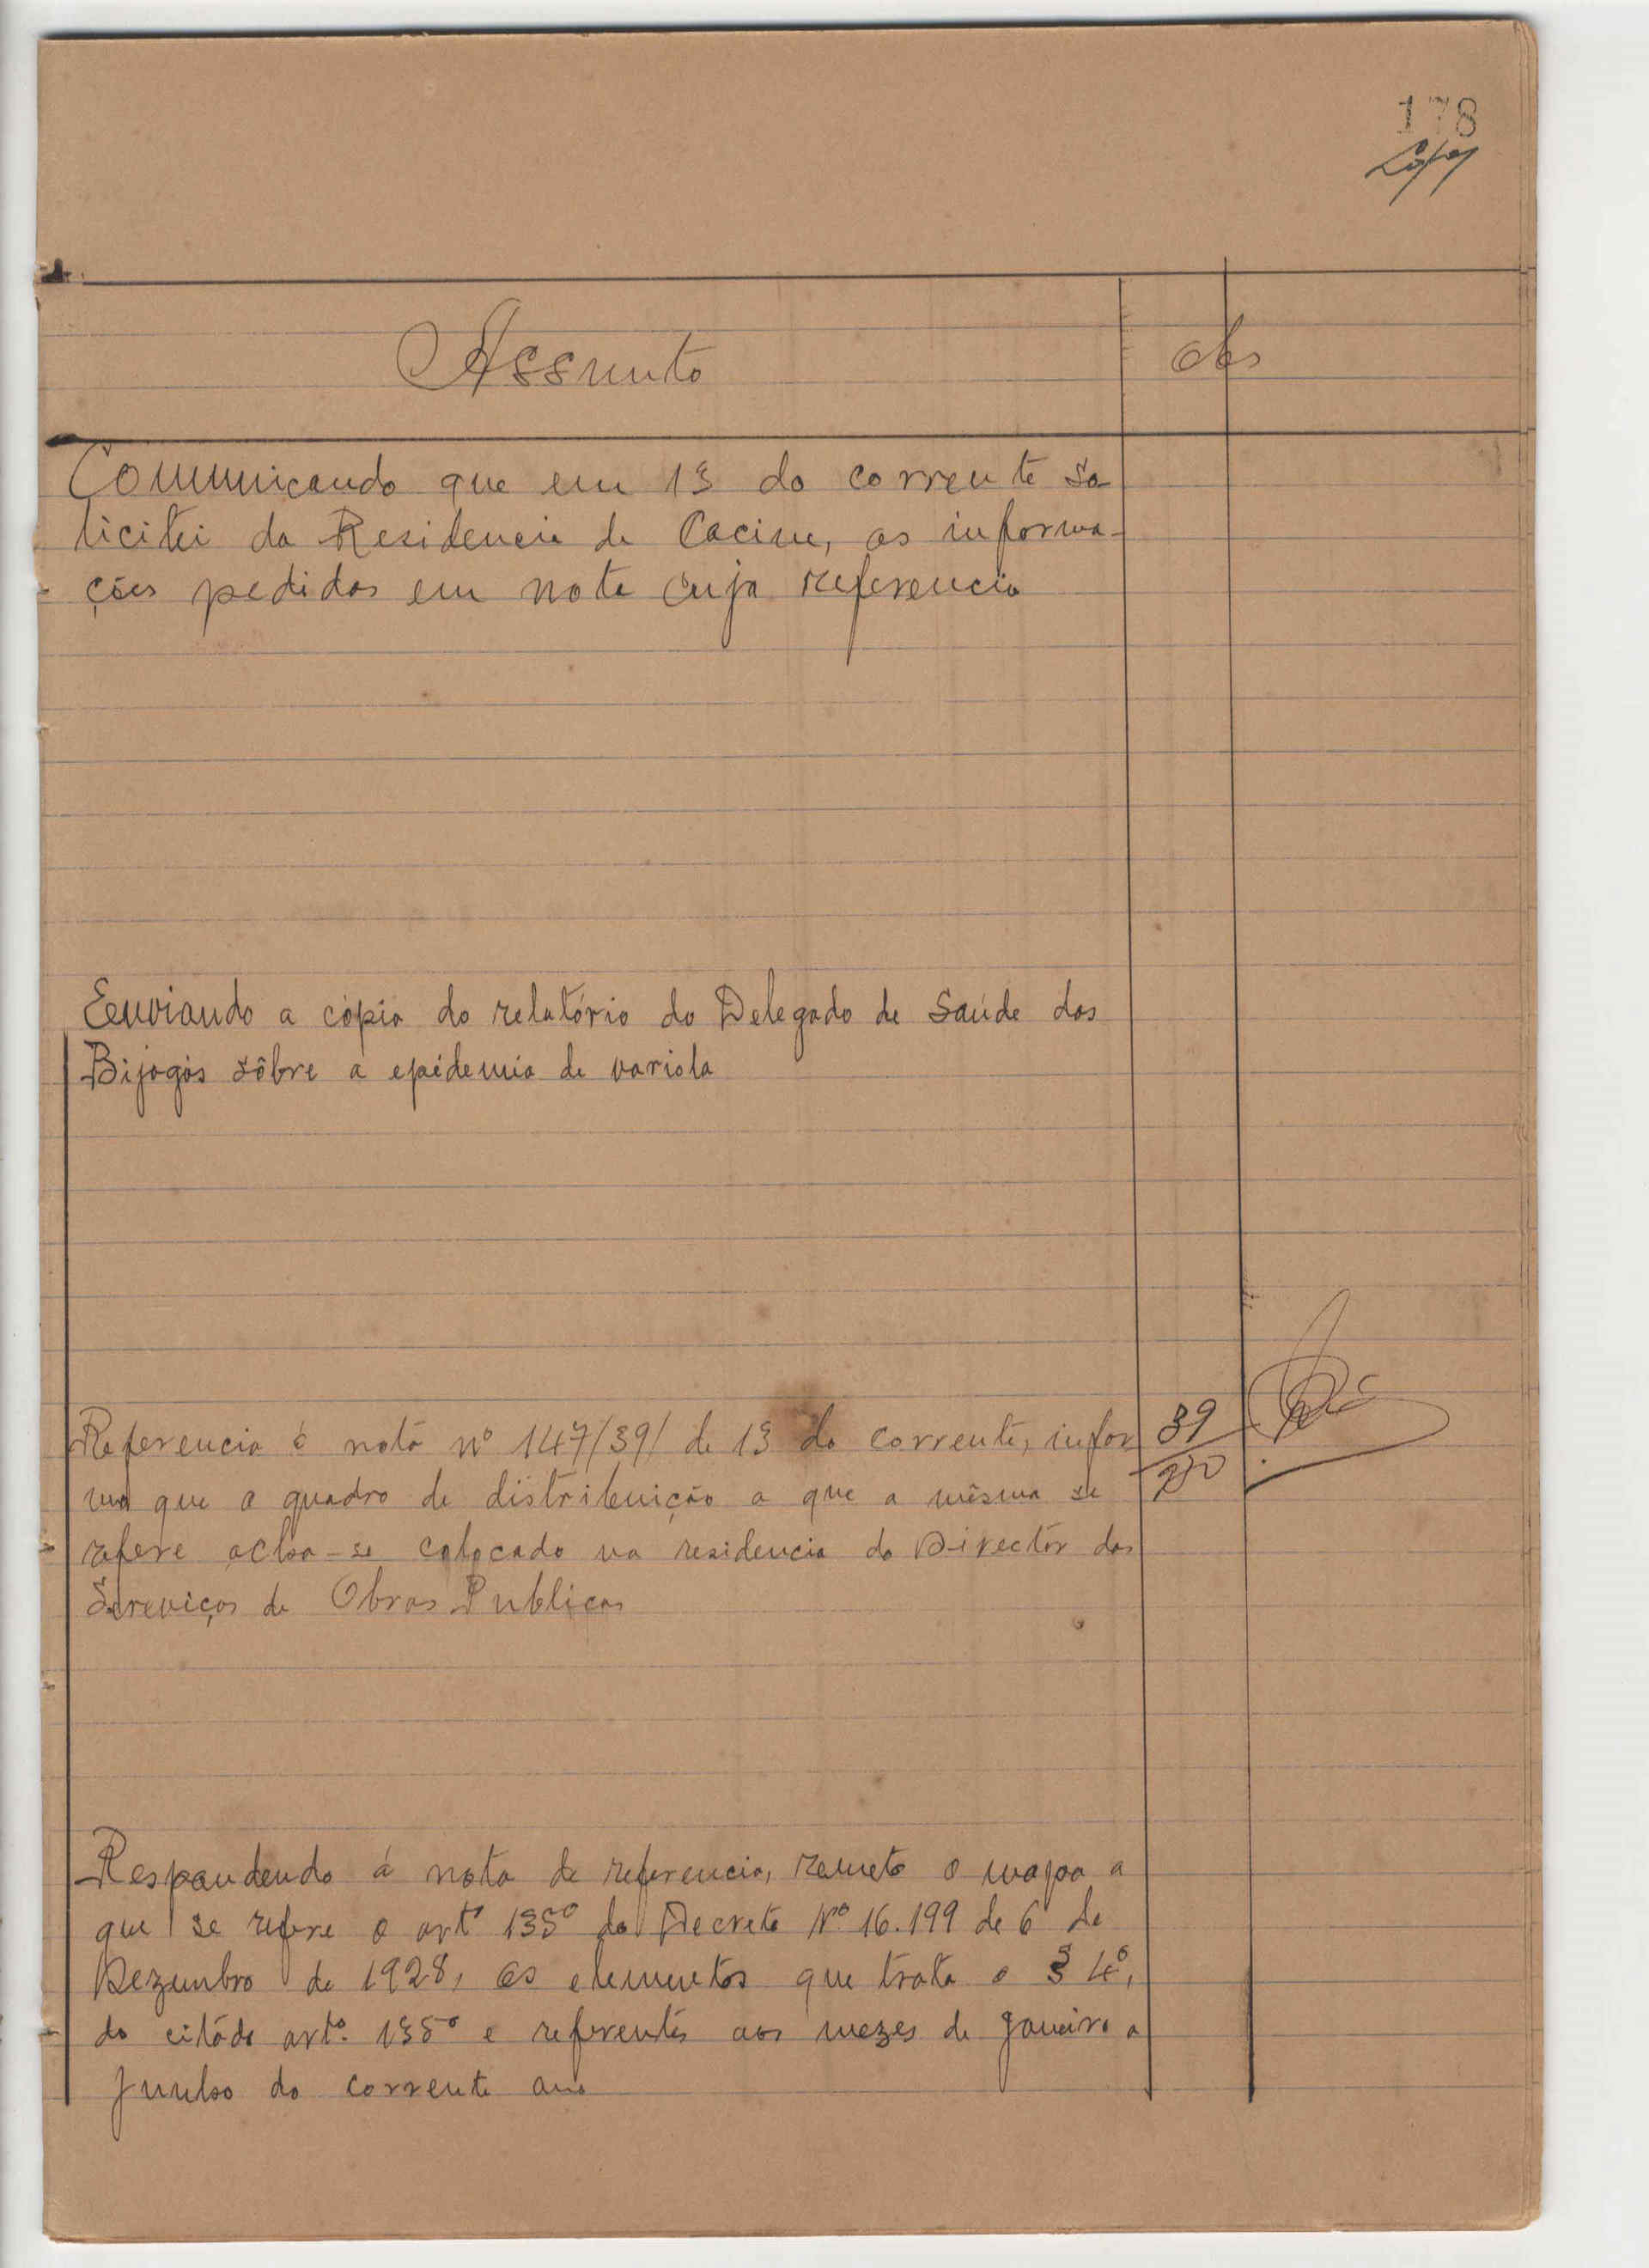 178
Assunto
obs
Communicando que em 13 do corrente so-
licitei da Residencia de Cacine, as informa-
ções pedidas em nota cuja referencia
Eenviando a cópia do relatório do Delegado de Saúde dos
Bijagós sôbre a epidemia de variola
Referencia é nota nº 147/39/ de 13 do corrente, infor
ma que o quadro de distribuição a que a mêsma se
refere acha-se colocado na residencia do Diréctor dos
Sereviços de Obras Publicas
39
Respondendo á nota de referencia, remeto o mapa a
que se refere o artº 135º do Decreto Nº 16.199 de 6 de
Dezembro de 1928, os elementos que trata o § 4º,
do citádo artº. 135º e referentes aos mezes de Janeiro a
Junho do corrente ano